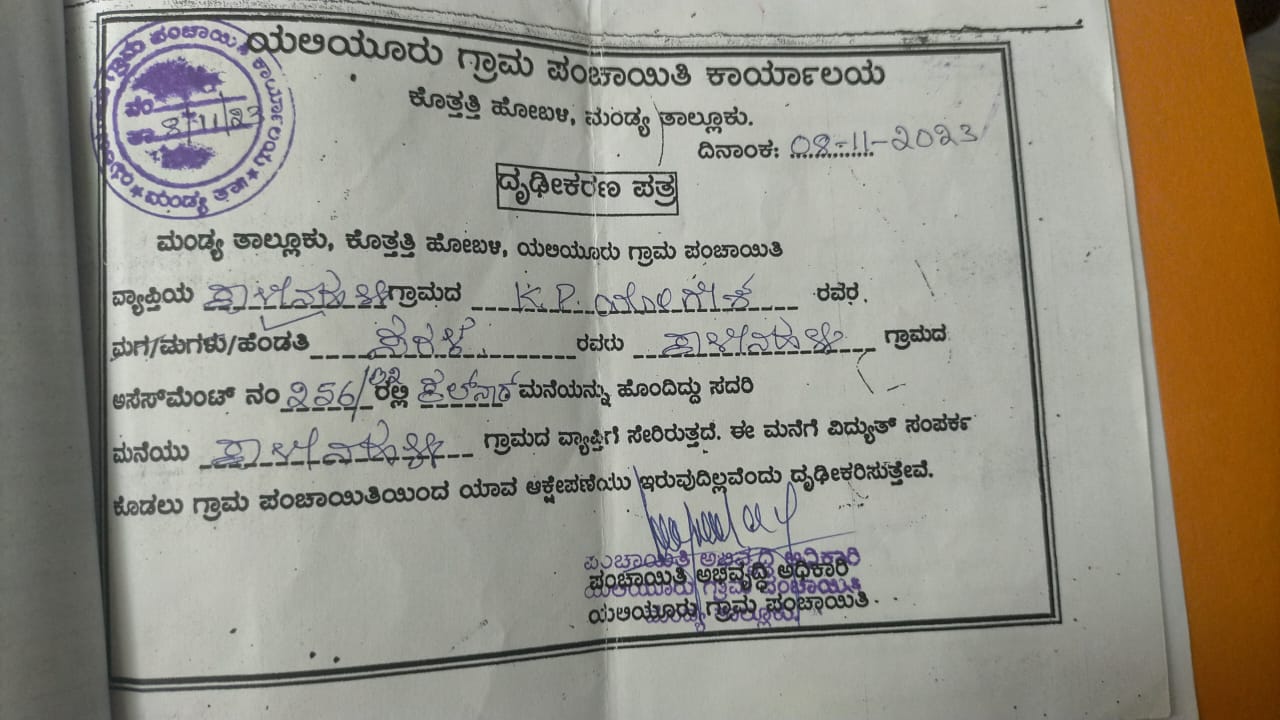 ಯಲಿಯೂರು ಗ್ರಾಮ ಪಂಚಾಯಿತಿ ಕಾರ್ಯಾಲಯ
ಕೊತ್ತತ್ತಿ ಹೋಬಳಿ, ಮಂಡ್ಯ ತಾಲ್ಲೂಕು.
ದಿನಾಂಕ: 08-11-2023
8/11/23
ದೃಢೀಕರಣ ಪತ್ರ
ಮಂಡ್ಯ ತಾಲ್ಲೂಕು, ಕೊತ್ತತ್ತಿ ಹೋಬಳಿ, ಯಲಿಯೂರು ಗ್ರಾಮ ಪಂಚಾಯಿತಿ
ವ್ಯಾಪ್ತಿಯ ಗ್ರಾಮದ K.P. ಯೋಗೇಶ ರವರ
ಮಗ/ಮಗಳು/ಹೆಂಡತಿ ರವರು ಗ್ರಾಮದ
ಅಸೆಸ್‌ಮೆಂಟ್ ನಂ 256/ ರಲ್ಲಿ ಮನೆಯನ್ನು ಹೊಂದಿದ್ದು ಸದರಿ
ಮನೆಯು ಗ್ರಾಮದ ವ್ಯಾಪ್ತಿಗೆ ಸೇರಿರುತ್ತದೆ. ಈ ಮನೆಗೆ ವಿದ್ಯುತ್ ಸಂಪರ್ಕ
ಕೂಡಲು ಗ್ರಾಮ ಪಂಚಾಯಿತಿಯಿಂದ ಯಾವ ಆಕ್ಷೇಪಣೆಯು ಇರುವುದಿಲ್ಲವೆಂದು ದೃಢೀಕರಿಸುತ್ತೇವೆ.
ಪಂಚಾಯಿತಿ ಅಭಿವೃದ್ಧಿ ಅಧಿಕಾರಿ
ಯಲಿಯೂರು ಗ್ರಾಮ ಪಂಚಾಯಿತಿ